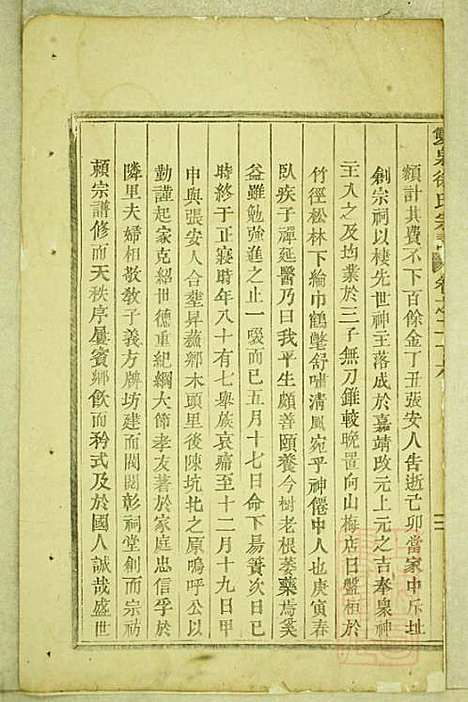 雙泉徐氏宗 卷之二十六
類計其費不下百餘金丁丑張安人告逝己卯當家中斥址
創宗祠以棲先世神主落成於嘉靖改元上元之吉奉臬神
主入之及均業於三子無刀錐較晚置向山梅店日盤桓於
竹徑松林下綸巾鶴氅舒嘯清風宛乎神僊中人也庚寅春
臥疾子禪延醫乃曰我平生頗善頤養今樹老根萎藥焉奚
益雖勉強進之止一啜而已五月十七日命下昜簀次日已
時終于正寢時年八十有七舉族哀痛至十二月十九日甲
申與張安人合塟昇蓀鄉木頭里後陳坑圠之原嗚呼公以
勤謹起家克紹世德重紀綱大節孝友著於家庭忠信孚於
隣里夫婦相敬敎子義方牌坊建而閥閱彰祠堂創而宗祊
賴宗譜修而天秩序屢賓鄉飲而矜式及於國人誠哉盛世